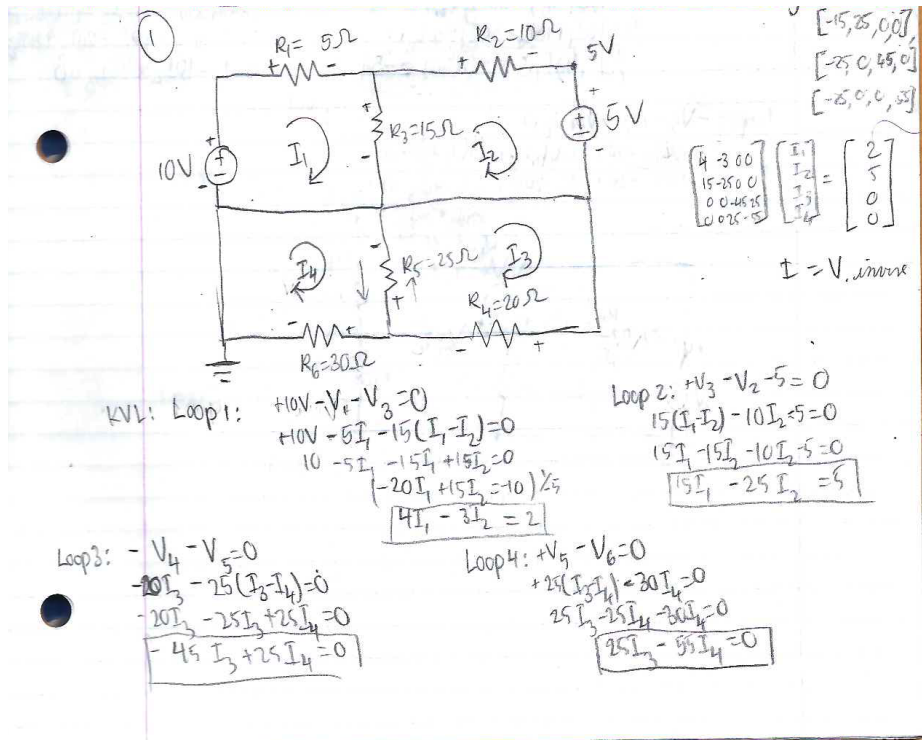 1
R1= 5Ω
R2=10Ω
5V
R3=15Ω
5V
10V
I1
I2
I4
R5=25Ω
I3
R4=20Ω
R6=30Ω
[-15,25,0,0],
[-25,0,45,0]
[-25,0,0,55]
[4 -3 0 0] [I1] [2]
[15 -25 0 0] [I2] = [5]
[0 0 -45 25] [I3] [0]
[0 0 25 -55] [I4] [0]
I = V. inverse
KVL: Loop 1: +10V - V1 - V3 = 0
+10V - 5I1 - 15(I1-I2)=0
10 - 5I1 - 15I1 + 15I2=0
(-20I1 + 15I2 = -10)
4I1 - 3I2 = 2
Loop 2: +V3 - V2 - 5 = 0
15(I1-I2) - 10I2 - 5 = 0
15I1 - 15I2 - 10I2 - 5 = 0
15I1 - 25I2 = 5
Loop 3: - V4 - V5 = 0
-20I3 - 25(I3-I4)=0
-20I3 - 25I3 + 25I4 = 0
- 45 I3 + 25I4 = 0
Loop 4: +V5 - V6 = 0
+25(I3-I4) - 30I4 = 0
25I3 - 25I4 - 30I4 = 0
25I3 - 55I4 = 0